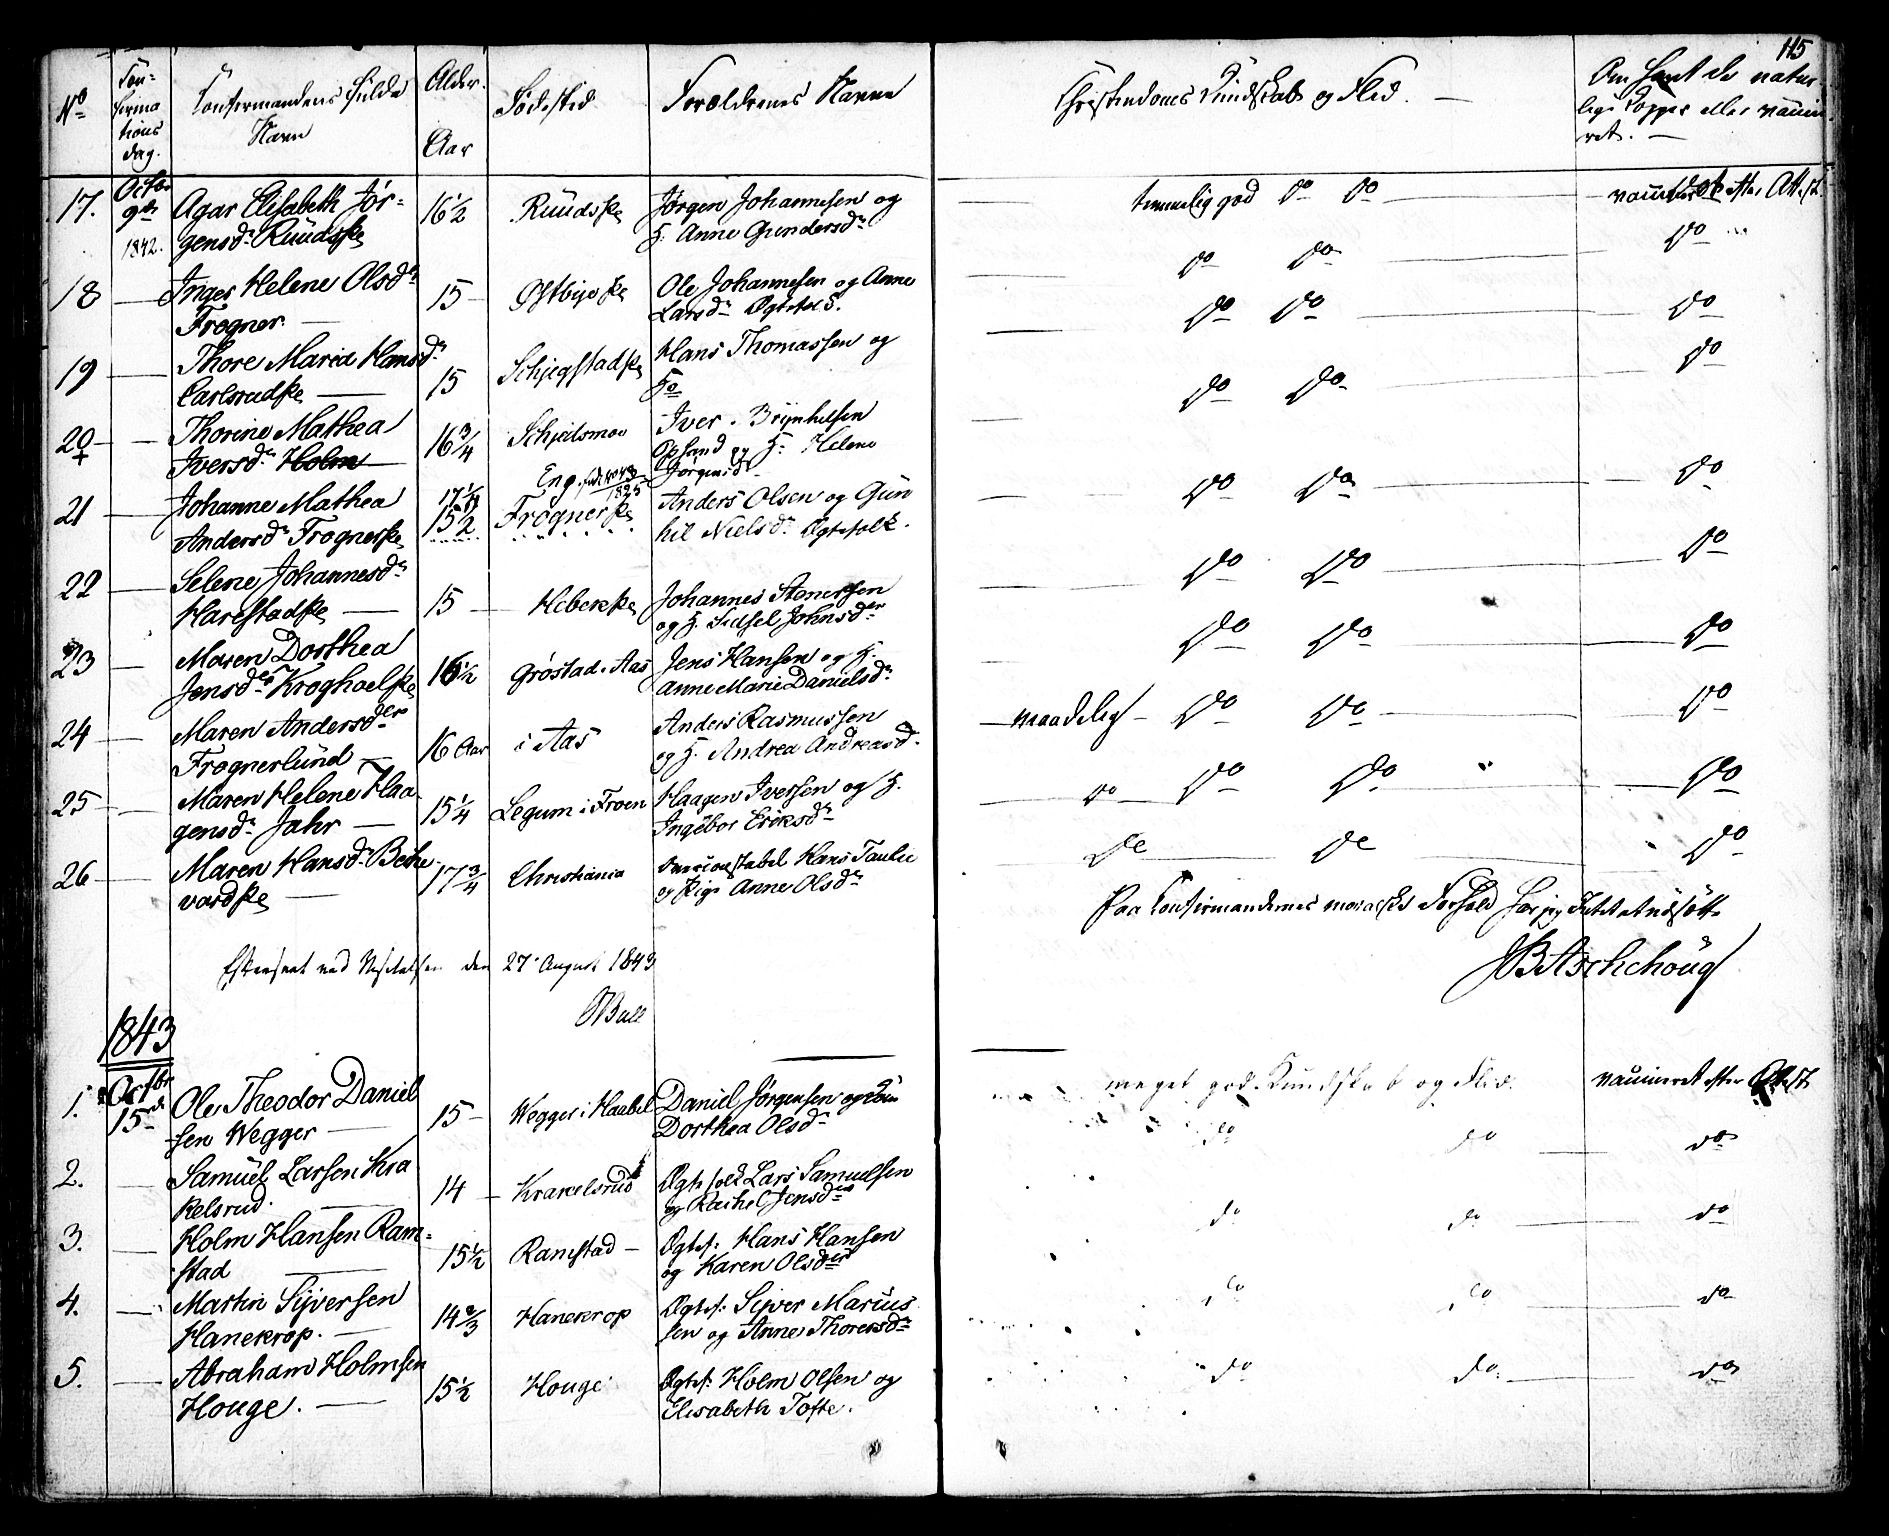 115
No
Con-
firma
tions
dag.
Confirmandens fulde
Navn
Alder.
Aar
Fødested
Forældrenes Navne
Christendoms Kundskab og Flid.
Om havt de natur-
lige Kopper eller vaccine-
ret.
17. Octbr 9de 1842. Agar Elisabeth Jør-
gensdr Ruudske 16½ Ruudske Jørgen Johannesen og
H. Anne Gundersdr temmelig god Do Do vaccineret efter Attest.
18 Inger Helene Olsdr
Frogner. 15 Østbyeske Ole Johannesen og Anne
Larsdr Ægtefolk. Do Do Do
19 Thore Maria Hansdr
Carlsrudske 15 Schjegstadske Hans Thomassen og
H. Do Do Do
20 Thorine Mathea
Iversdr Holm 16¾ Schjeilsmoe Iver Brynhilsen
Opsand og H: Helene
Jørgensdr Do Do Do
21 Johanne Mathea
Andersdr Frognerske 17¼ 15½ Eng. 1825 Frognerske Anders Olsen og Gun
hil Nielsdr Ægtefolk. Do Do Do
22 Selene Johannesdr
Harestadske 15 Hebekke Johannes Stenersen
og H. Sidsel Johnsdr Do Do Do
23 Maren Dorthea
Jensdr Kroghoelske 16½ Grøstad i Aas Jens Hansen og H.
Anne Marie Danielsdr Do Do Do
24 Maren Andersdr
Frognerlund 16 Aar i Aas Anders Rasmussen
og H. Andrea Andreasdr. maadelig Do Do Do
25 Maren Helene Haa-
gensdr Jahr 15¼ Legum i Froen Haagen Iversen og H.
Ingebor Eriksdr Do Do Do Do
26 Maren Hansdr Bethe-
vardske 17¾ Christiania Hans Taulie
og Pige Anne Olsdr Do Do Do
Paa Confirmandernes moralske Forhold har jeg Intet at udsætte
JB Aschehoug
Efterseet ved Visitatsen den 27 August 1843
Bull
1843
1. Octbr 15de Ole Theodor Daniel
sen Wegger 15 Wegger i Haabel Daniel Jørgensen og
Dorthea Olsdr meget god Kundskab og Flid. vaccineret efter Attest
2. Samuel Larsen Kra
kelsrud. 14 Krakelsrud Ægtefolk Lars Samuelsen
og Rachel Jensdr do do do
3. Holm Hansen Ram-
stad 15½ Ramstad Ægtef: Hans Hansen
og Karen Olsdr do do do
4. Martin Syversen
Hanekrop. 14⅔ Hanekrop Ægtef: Syver Marius
sen og Anne Thoresdr do do do
5. Abraham Holmsen
Houge. 15½ Houge Ægtef: Holm Olsen og
Elisabeth Tofte. do do do